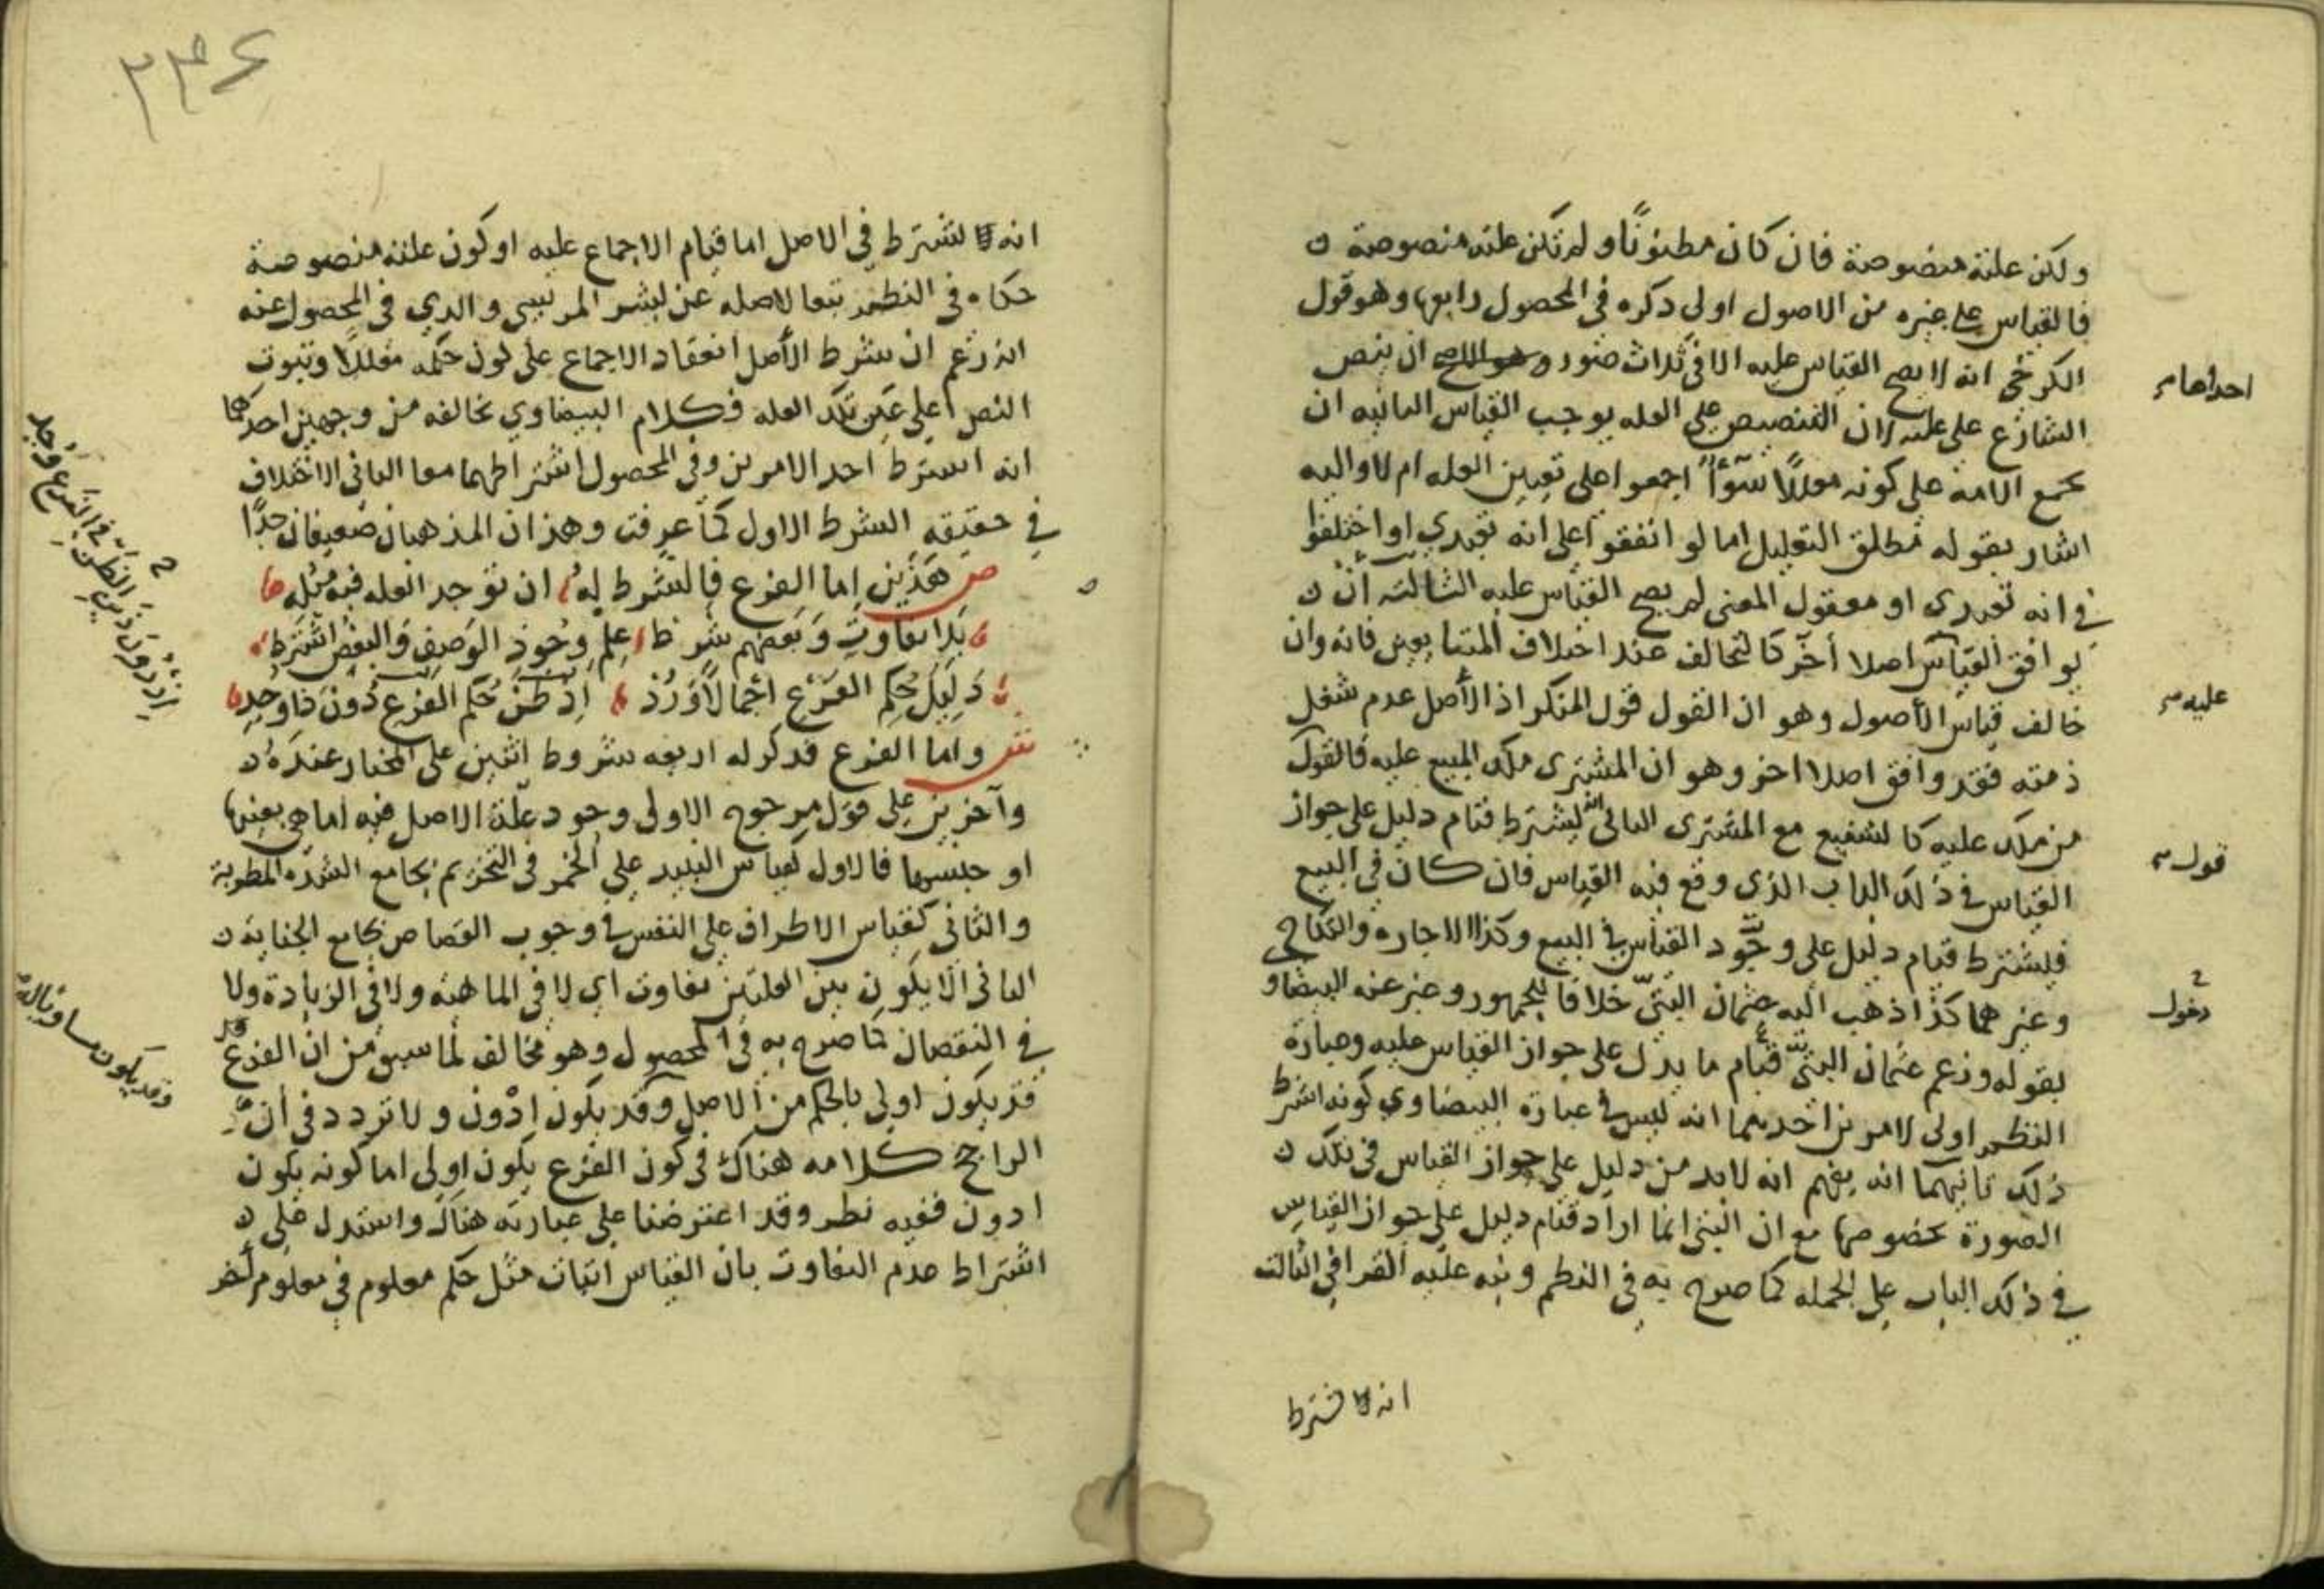 ولكن علته منصوصة فان كان مظنونًا ولم تكن علته منصوصة
فالقياس على غيره من الاصول اولى ذكره في المحصول رابعها وهو قول
الكرخي انه لا يصح القياس عليه الا في ثلاث صور ان ينص
الشارع على علته لان التنصيص على العله يوجب القياس الثانيه ان
تجمع الامة على كونه معللًا سوآءً اجمعوا على تعيين العله ام لا واليه
اشار بقوله مطلق التعليل اما لو اتفقوا على انه تعبدي او اختلفوا
في انه تعبدي او معقول المعنى لم يصح القياس عليه الثالثه ان
يوافق القياس اصلا آخر كالتحالف عند اختلاف المتبايعين فانه وان
خالف قياس الأصول وهو ان القول قول المنكر اذ الأصل عدم شغل
ذمته فقد وافق اصلا اخر وهو ان المشترى ملك المبيع عليه فالقول
من ملك عليه كالشفيع مع المشترى الثاني انه يشترط قيام دليل على جواز
القياس في ذلك الباب الذي وقع فيه القياس فان كان في البيع
فليشترط قيام دليل على وجود القياس في البيع وكذا الاجارة والنكاح
وغيرهما كذا ذهب اليه عثمان البتي خلافا للجمهور وعبر عنه البيضاو
بقوله وزعم عثمان البتي قيام ما يدل على جواز القياس عليه وعبارة
النظم اولى لامرين احدهما انه ليس في عبارة البيضاوي كونه اشترط
ذلك ثانيهما انه يفهم انه لابد من دليل على جواز القياس في تلك
الصورة بخصوصها مع ان البتي انما اراد قيام دليل على جواز القياس
في ذلك الباب على الجمله كما صرح به في النظم ونبه عليه القرافي الثالث
انه لا يشترط
احداها
عليه
قول
دخول
٢٣٤
انه لا يشترط في الاصل اما قيام الاجماع عليه او كون علته منصوصة
حكاه في النظم تبعا لاصله عن بشر المريسي والذي في المحصول عنه
انه زعم ان شرط الأصل انعقاد الاجماع على كون حكمه معللًا وثبوت
النص على عين تلك العله فكلام البيضاوي يخالفه من وجهين احدهما
انه اشترط احد الامرين وفي المحصول اشتراطهما معا الثاني الاختلاف
في حقيقه الشرط الاول كما عرفت وهذان المذهبان ضعيفان جدًا
ص هذين اما الفرع فالشرط له ان توجد العله فيه مثله
بلا تفاوت وبعضهم شرط علم وجود الوصف والبعض اشترط
دليل حكم الفرع اجمالًا ورُدّ اذ ظن حكم الفرع دون ذا وجد
ش واما الفرع فذكر له اربعه شروط اثنين على المختار عنده
وآخرين على قول مرجوح الاولى وجود علة الاصل فيه اما هي بعينها
او جنسها فالاول كقياس النبيذ على الخمر في التحريم بجامع الشده المطربة
والثاني كقياس الاطراف على النفس في وجوب القصاص بجامع الجناية
الثاني الا يكون بين العلتين تفاوت اي لا في الماهيه ولا في الزيادة ولا
في النقصان كما صرح به في المحصول وهو مخالف لما سبق من ان الفرع
قد يكون اولى بالحكم من الاصل وقد يكون ادون ولا تردد في ان
الراجح كلامه هناك في كون الفرع يكون اولى اما كونه يكون
ادون ففيه نظر وقد اعترضنا على عبارته هناك واستدل على
اشتراط عدم التفاوت بان القياس اثبات مثل حكم معلوم في معلوم آخر
وقد يكون مساويا له